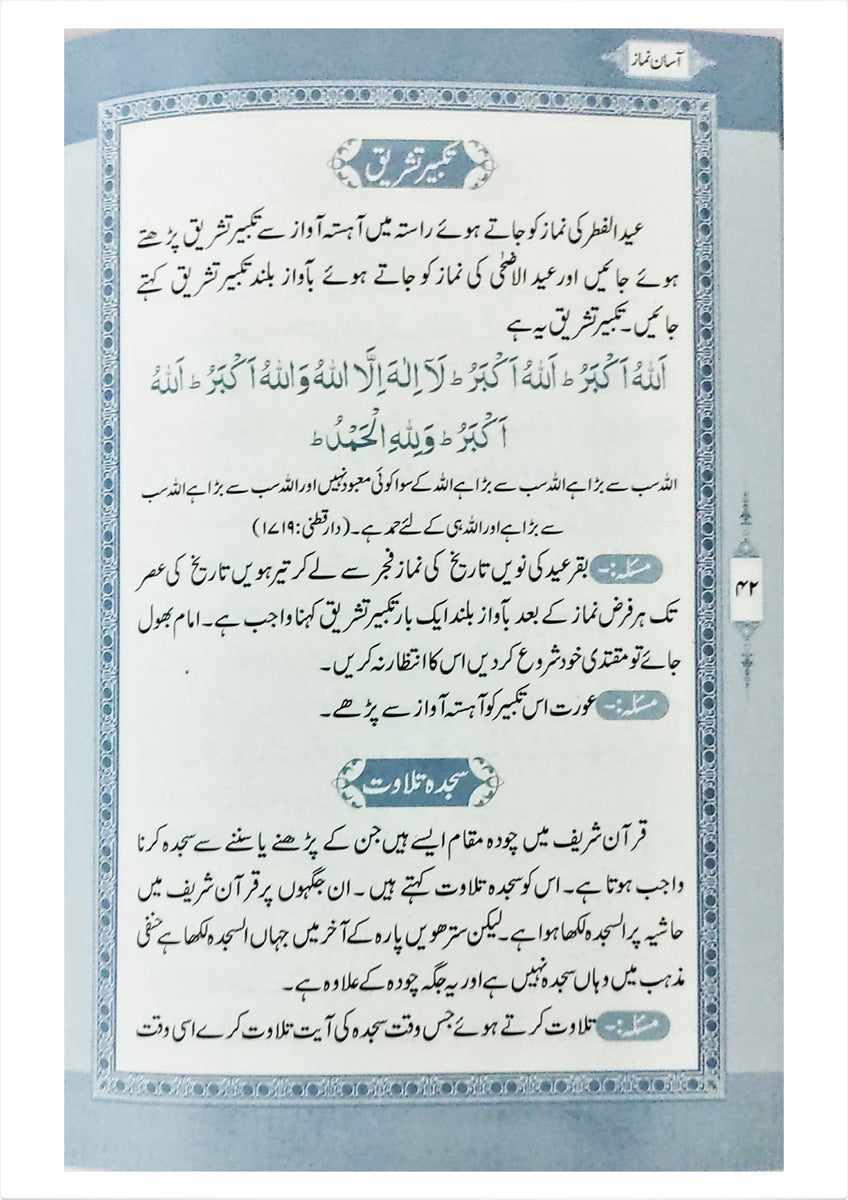 آسان نماز
تکبیر تشریق
عید الفطر کی نماز کو جاتے ہوئے راستہ میں آہستہ آواز سے تکبیر تشریق پڑھتے
ہوئے جائیں اور عید الاضحٰی کی نماز کو جاتے ہوئے بآواز بلند تکبیر تشریق کہتے
جائیں۔ تکبیر تشریق یہ ہے
اَللّٰهُ اَكْبَرُ ط اَللّٰهُ اَكْبَرُ ط لَآ اِلٰهَ اِلَّا اللّٰهُ وَاللّٰهُ اَكْبَرُ ط اَللّٰهُ
اَكْبَرُ ط وَلِلّٰهِ الْحَمْدُ ط
اللہ سب سے بڑا ہے اللہ سب سے بڑا ہے اللہ کے سوا کوئی معبود نہیں اور اللہ سب سے بڑا ہے اللہ سب
سے بڑا ہے اور اللہ ہی کے لئے حمد ہے۔ (دارقطنی: ۱۷۱۹)
مسئلہ:۔ بقر عید کی نویں تاریخ کی نماز فجر سے لے کر تیرہویں تاریخ کی عصر
تک ہر فرض نماز کے بعد بآواز بلند ایک بار تکبیر تشریق کہنا واجب ہے۔ امام بھول
جائے تو مقتدی خود شروع کر دیں اس کا انتظار نہ کریں۔
مسئلہ:۔ عورت اس تکبیر کو آہستہ آواز سے پڑھے۔
۴۲
سجدہ تلاوت
قرآن شریف میں چودہ مقام ایسے ہیں جن کے پڑھنے یا سننے سے سجدہ کرنا
واجب ہوتا ہے۔ اس کو سجدہ تلاوت کہتے ہیں۔ ان جگہوں پر قرآن شریف میں
حاشیہ پر السجدہ لکھا ہوا ہے۔ لیکن سترھویں پارہ کے آخر میں جہاں السجدہ لکھا ہے حنفی
مذہب میں وہاں سجدہ نہیں ہے اور یہ جگہ چودہ کے علاوہ ہے۔
مسئلہ:۔ تلاوت کرتے ہوئے جس وقت سجدہ کی آیت تلاوت کرے اسی وقت